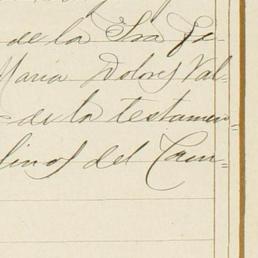 de la Sra Fe-
Maria Dolores Val-
de la testamen=
linos del Cam=